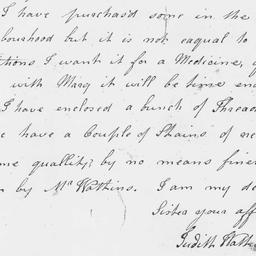 I have purchasd some in the
bourhood but it is not eaqual to
tions I want it for a Medicine,
with Marq it will be time en
I have enclosed a bunch of Thread
e have a Couple of Skains of ne
me quallity; by no means finer
by Mr Watkins. I am my de
Sister your aff
Judith Watk